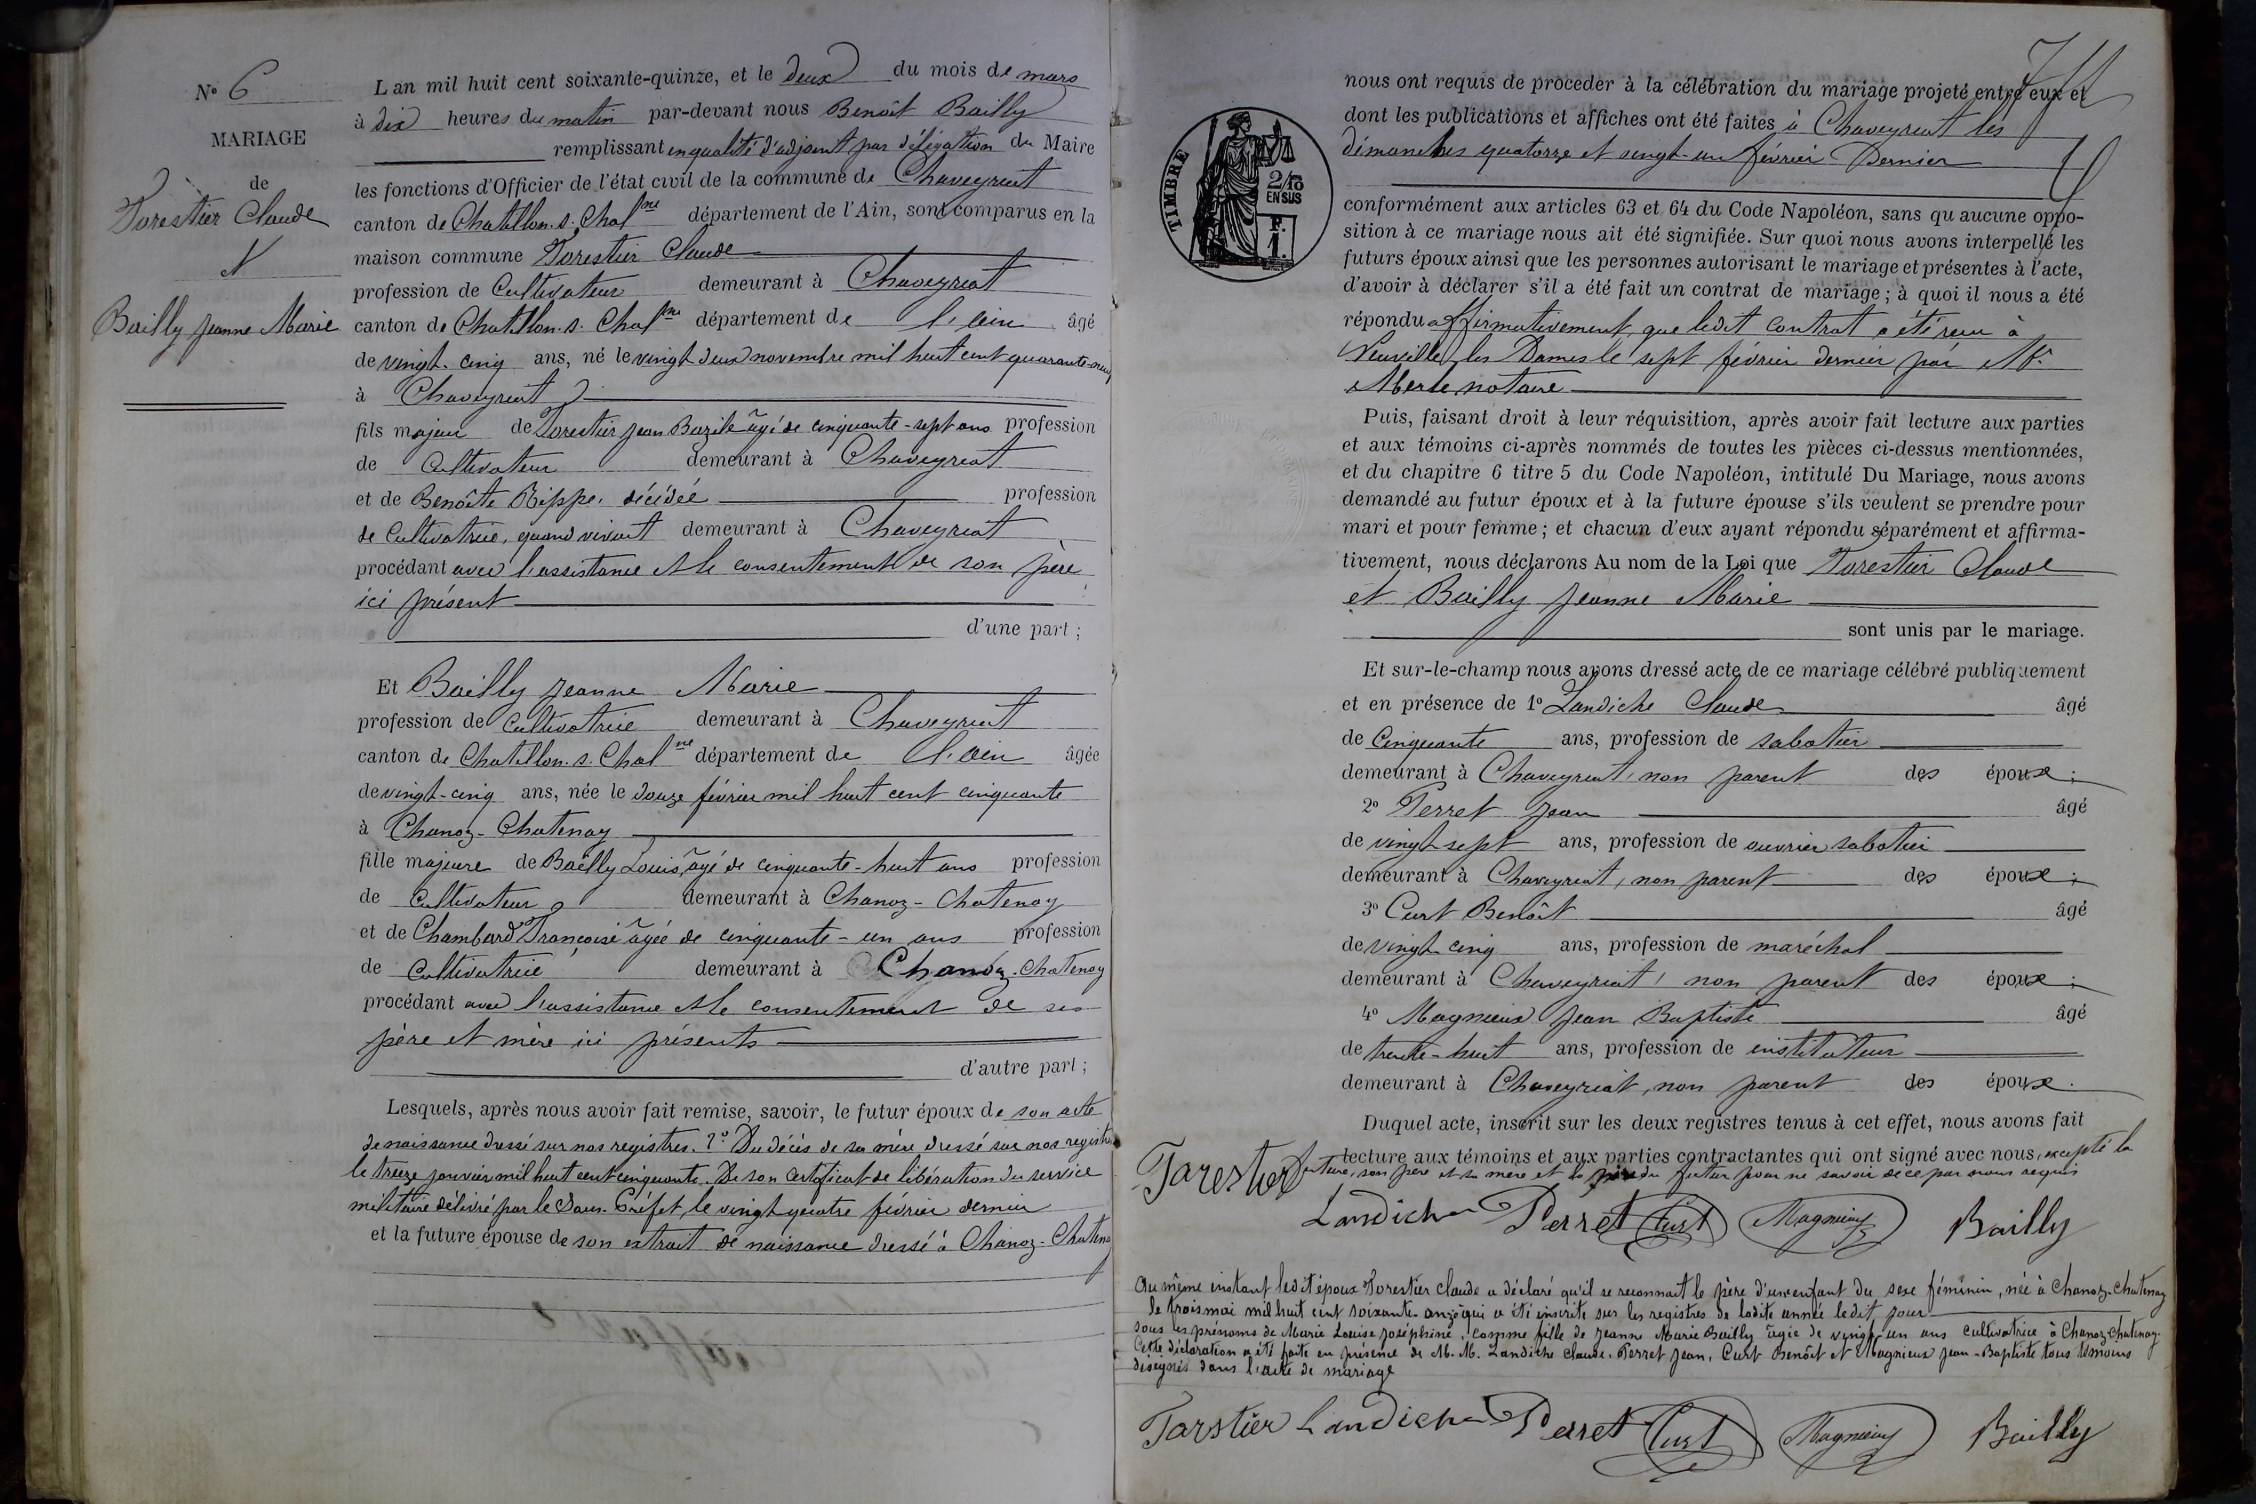 N° 6
MARIAGE
de
Forestier Claude
et
Bailly Jeanne Marie
L'an mil huit cent soixante-quinze, et le deux du mois de mars
à dix heures du matin par-devant nous Benoît Bailly
remplissant en qualité d'adjoint par délégation du Maire
les fonctions d'Officier de l'état civil de la commune de Chaveyriat
canton de Chatillon. s. Chalne département de l'Ain, sont comparus en la
maison commune Forestier Claude
profession de Cultivateur demeurant à Chaveyriat
canton de Chatillon. s. Chalne département de l'ain âgé
de vingt-cinq ans, né le vingt deux novembre mil huit cent quarante-neuf
à Chaveyriat
fils majeur de Forestier Jean Bazile âgé de cinquante-sept ans profession
de Cultivateur demeurant à Chaveyriat
et de Benoîte Rippe, décédée profession
de Cultivatrice, quand vivait demeurant à Chaveyriat
procédant avec l'assistance et le consentement de son père
ici présent
d'une part ;
Et Bailly Jeanne Marie
profession de Cultivatrice demeurant à Chaveyriat
canton de Chatillon. s. Chalne département de l'ain âgée
de vingt-cinq ans, née le douze février mil huit cent cinquante
à Chanoz-Chatenay
fille majeure de Bailly Louis, âgé de cinquante-huit ans profession
de Cultivateur demeurant à Chanoz-Chatenay
et de Chambard Françoise âgée de cinquante-un ans profession
de Cultivatrice demeurant à Chanoz-Chatenay
procédant avec l'assistance et le consentement de ses
père et mère ici présents
d'autre part ;
Lesquels, après nous avoir fait remise, savoir, le futur époux de son acte
de naissance dressé sur nos registres. 2° Du décès de sa mère dressé sur nos registres
le treize janvier mil huit cent cinquante. De son certificat de libération du service
militaire délivré par le Sous-Préfet, le vingt quatre février dernier
et la future épouse de son extrait de naissance dressé à Chanoz-Chatenay
nous ont requis de procéder à la célébration du mariage projeté entre eux et
dont les publications et affiches ont été faites à Chaveyriat les
dimanches quatorze et vingt-un février Dernier
TIMBRE
2/10
EN SUS
F.
1.
conformément aux articles 63 et 64 du Code Napoléon, sans qu'aucune oppo-
sition à ce mariage nous ait été signifiée. Sur quoi nous avons interpellé les
futurs époux ainsi que les personnes autorisant le mariage et présentes à l'acte,
d'avoir à déclarer s'il a été fait un contrat de mariage ; à quoi il nous a été
répondu affirmativement, que ledit contrat a été reçu à
Neuville les Dames le sept février dernier par Me
Merle notaire
Puis, faisant droit à leur réquisition, après avoir fait lecture aux parties
et aux témoins ci-après nommés de toutes les pièces ci-dessus mentionnées,
et du chapitre 6 titre 5 du Code Napoléon, intitulé Du Mariage, nous avons
demandé au futur époux et à la future épouse s'ils veulent se prendre pour
mari et pour femme ; et chacun d'eux ayant répondu séparément et affirma-
tivement, nous déclarons Au nom de la Loi que Forestier Claude
et Bailly Jeanne Marie
sont unis par le mariage.
Et sur-le-champ nous avons dressé acte de ce mariage célébré publiquement
et en présence de 1° Landiche Claude âgé
de Cinquante ans, profession de sabotier
demeurant à Chaveyriat, non parent des époux ;
2° Perret Jean âgé
de vingt sept ans, profession de ouvrier sabotier
demeurant à Chaveyriat, non parent des époux ;
3° Curt Benoît âgé
de vingt cinq ans, profession de maréchal
demeurant à Chaveyriat, non parent des époux ;
4° Magnieux Jean Baptiste âgé
de trente-huit ans, profession de instituteur
demeurant à Chaveyriat, non parent des époux.
Duquel acte, inscrit sur les deux registres tenus à cet effet, nous avons fait
lecture aux témoins et aux parties contractantes qui ont signé avec nous, excepté la
future, son père et sa mère et le père du futur pour ne savoir de ce par nous requis
Farestier
Landiche Perret Curt Magnieux Bailly
Au même instant ledit époux Forestier Claude a déclaré qu'il se reconnait le père d'un enfant du sexe féminin, née à Chanoz-Chatenay
le trois mai mil huit cent soixante-onze qui a été inscrite sur les registres de ladite année ledit jour
sous les prénoms de Marie Louise Joséphine, comme fille de Jeanne Marie Bailly âgée de vingt-un ans cultivatrice à Chanoz-Chatenay.
Cette déclaration a été faite en présence de M. M. Landiche Claude, Perret Jean, Curt Benoît et Magnieux Jean-Baptiste tous témoins
désignés dans l'acte de mariage
Farstier Landiche Perret Curt Magnieux Bailly